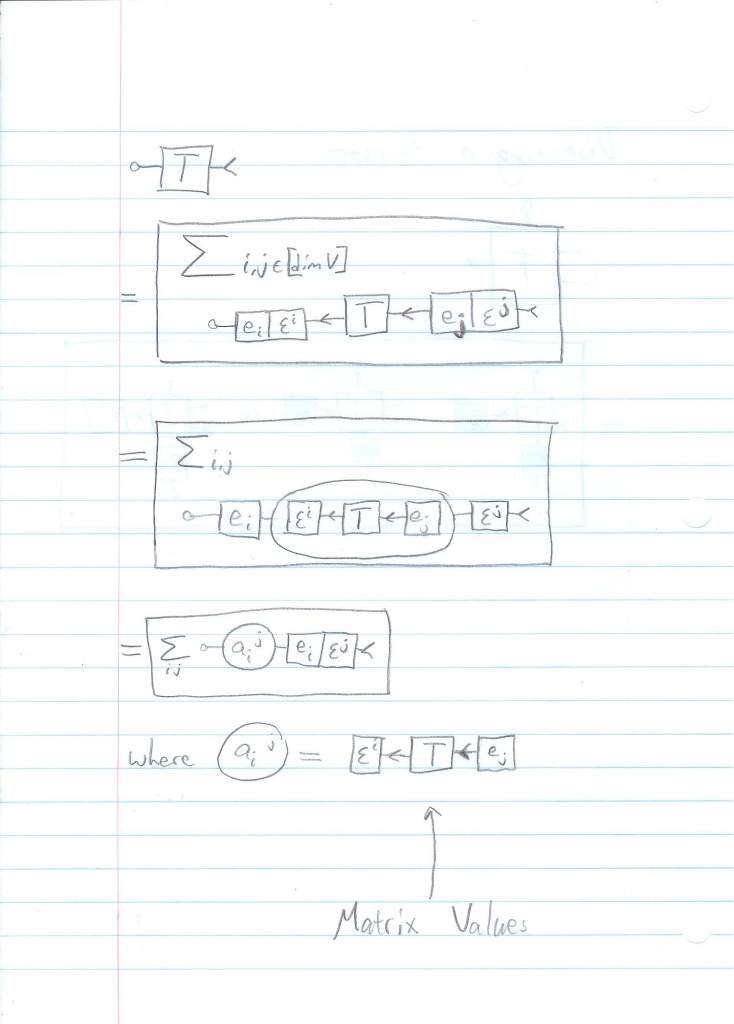 T
= ∑ i,j ∈ [dim V]
e_i ε^i T e_j ε^j
= ∑ i,j
e_i ε^i T e_j ε^j
= ∑ ij a_i^j e_i ε^j
where a_i^j = ε^i T e_j
Matrix Values